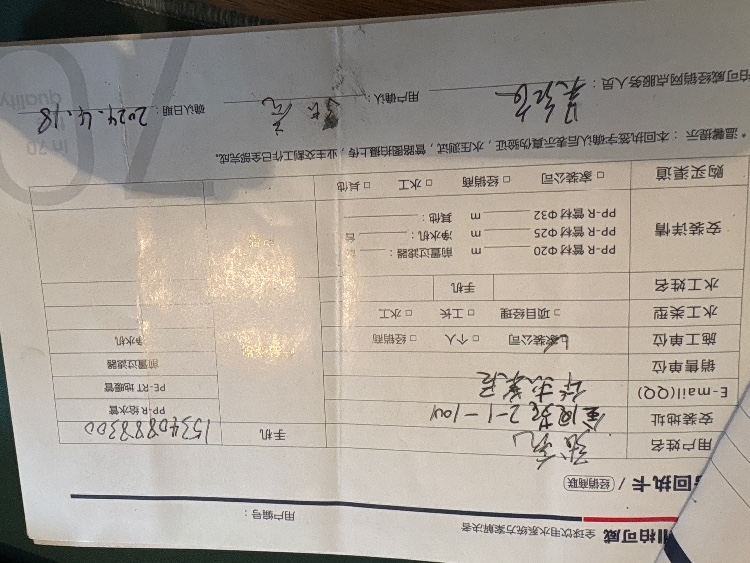 柏可威 全球饮用水系统方案解决者
用户编号：
回执卡 / 经销商联
用户姓名 张亮 手机 15340888300
安装地址 2-1-1041 PP-R 给水管
E-mail(QQ) PE-RT 地暖管
销售单位 前置过滤器
施工单位 家装公司 □ 个人 □ 经销商 净水机
水工类型 □ 项目经理 □ 工长 □ 水工
水工姓名 手机
安装详情
PP-R 管材 Φ20 m 前置过滤器：
PP-R 管材 Φ25 m 净水机： 台
PP-R 管材 Φ32 m 其他：
购买渠道 □ 家装公司 □ 经销商 □ 水工 □ 其他
* 温馨提示：本回执签字确认后表示真伪验证，水压测试，管路图拍摄上传，业主交割工作已全部完成。
柏可威经销网点服务人员： 用户确认： 张亮 确认日期： 2024.4.18
in 70
quality
70